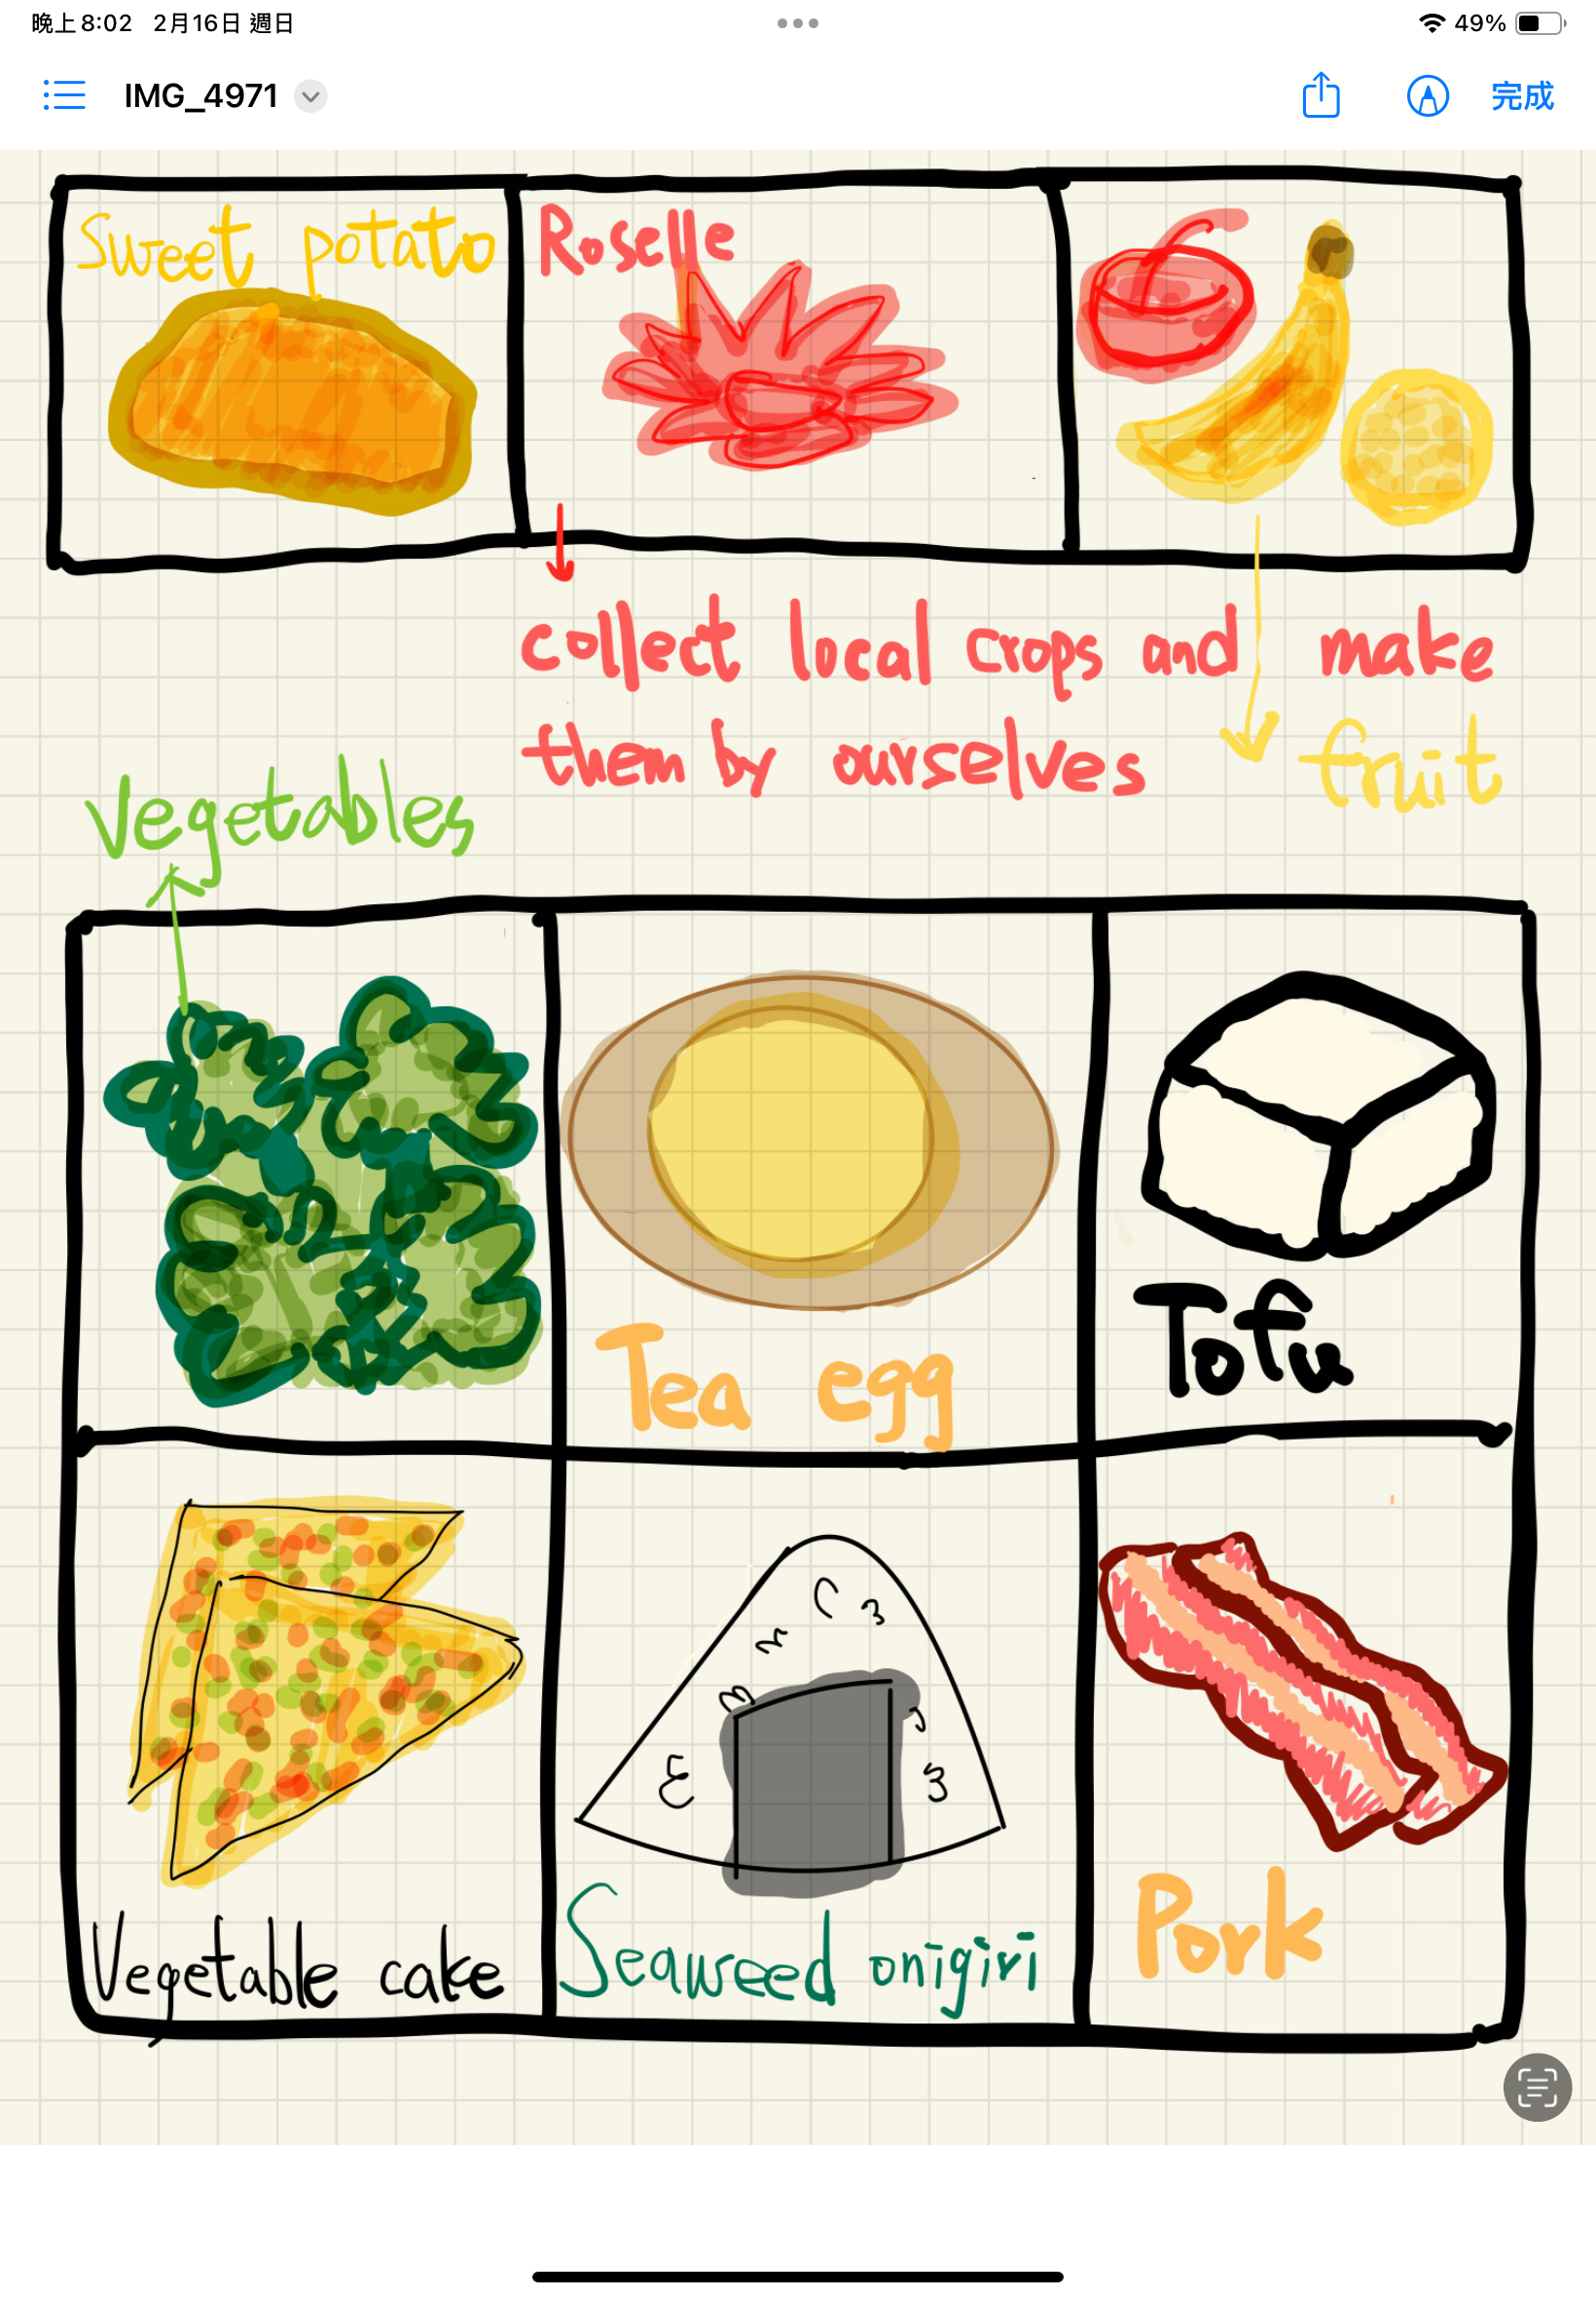 晚上8:02 2月16日 週日
49%
IMG_4971
完成
Sweet potato
Roselle
collect local crops and make
them by ourselves
fruit
Vegetables
Tea egg
Tofu
Vegetable cake
Seaweed onigiri
Pork